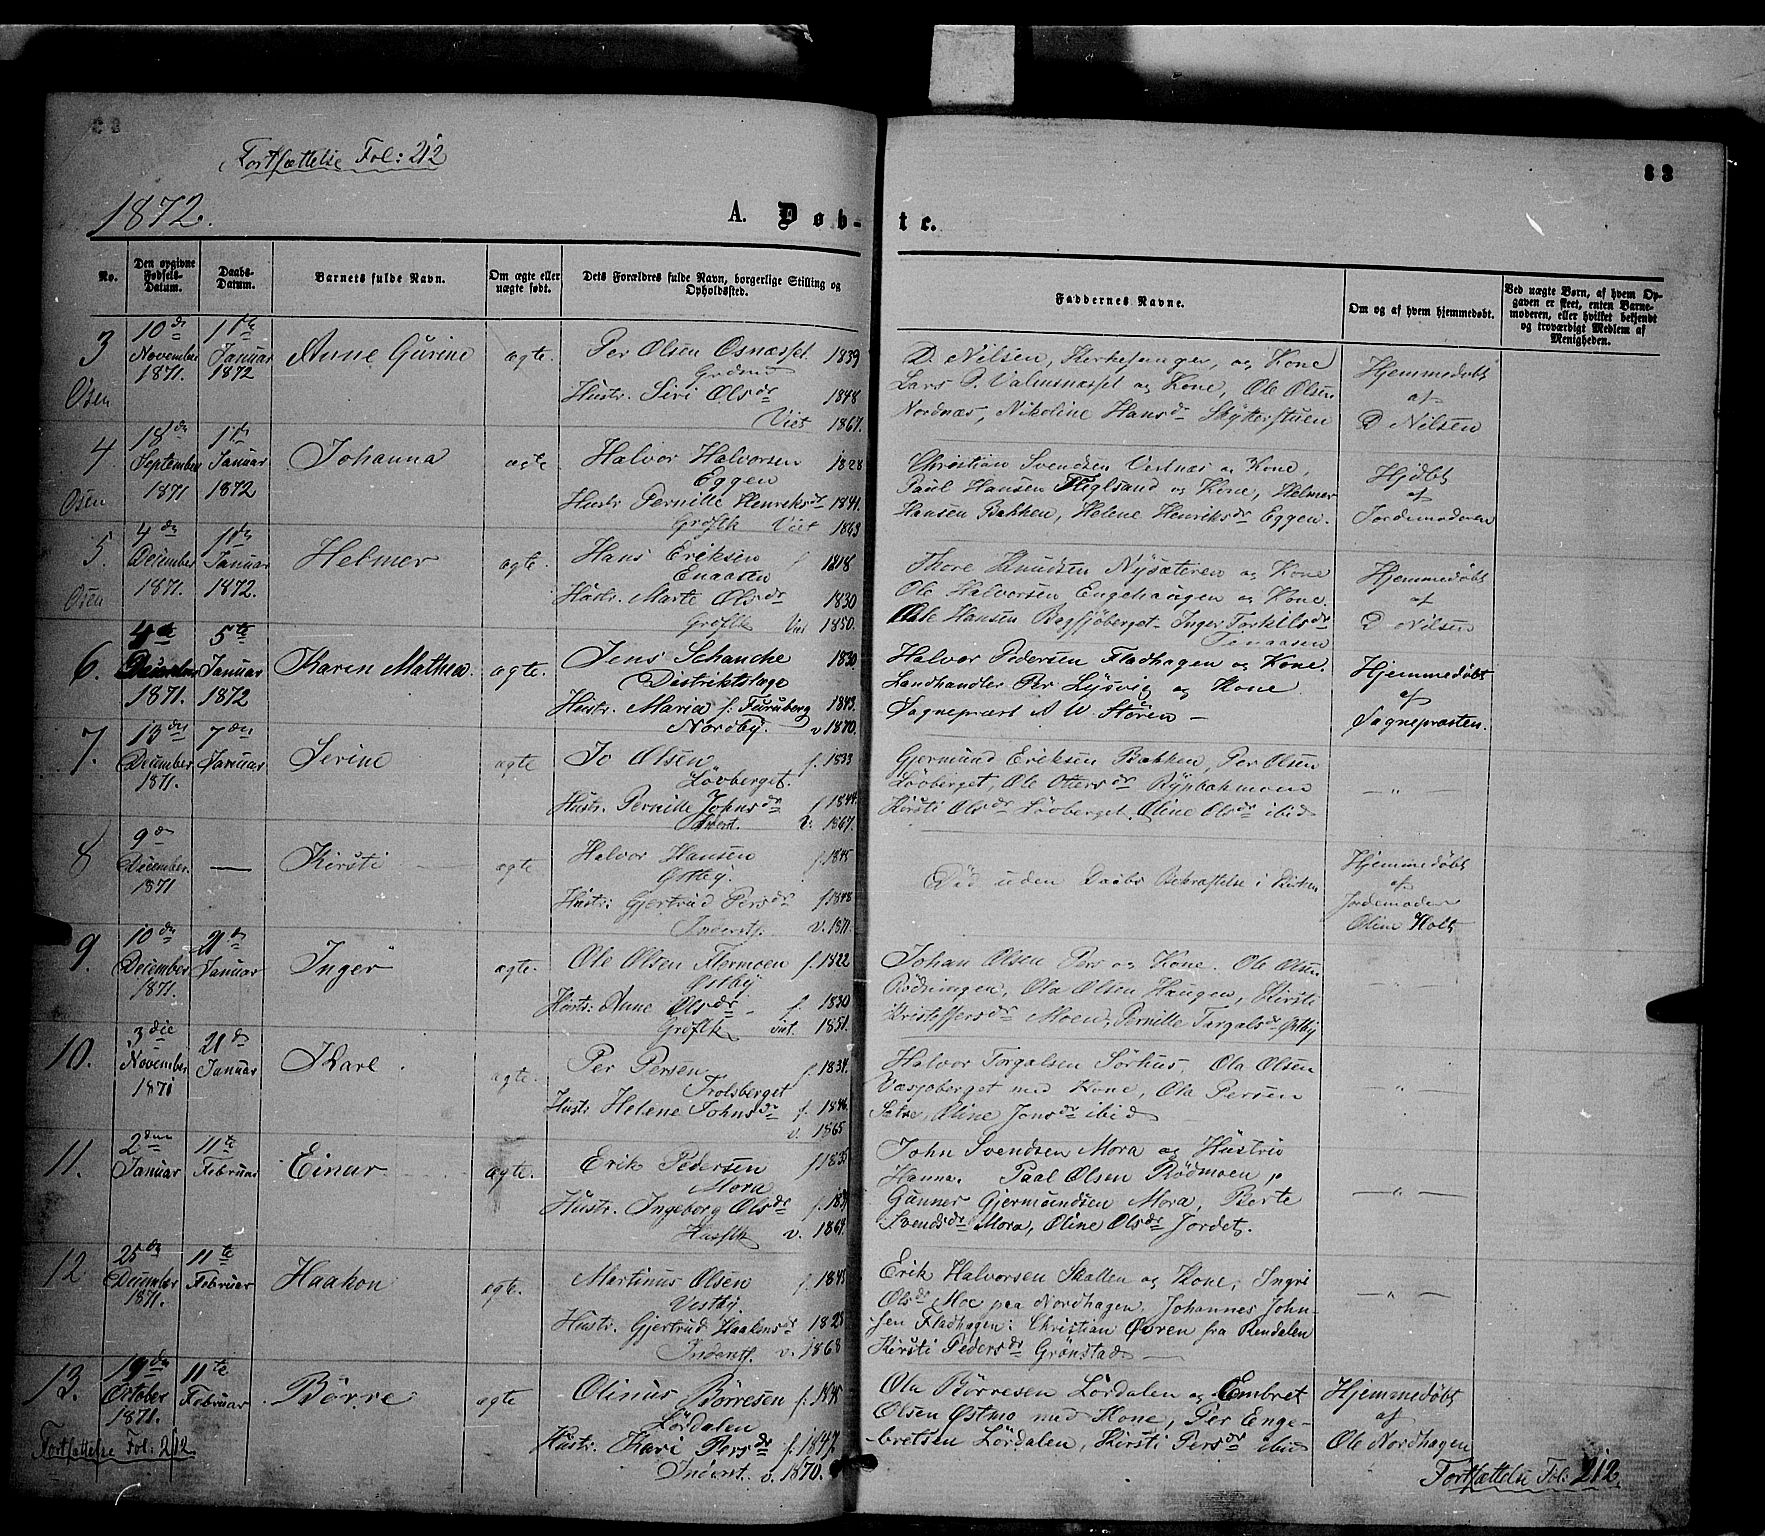 Fortsættelse Fol: 212
83
1872.
A. Døb-
te.
No.
Den opgivne Fødsels-Datum.
Daabs-Datum.
Barnets fulde Navn.
Om ægte eller uægte født.
Dets Forældres fulde Navn, borgerlige Stilling og Opholdssted.
Faddernes Navne.
Om og af hvem hjemmedøbt.
Ved uægte Børn, af hvem Opgaven er skeet, enten Barnemoderen, eller hvilket bekjendt og troværdigt Medlem af Menigheden.
3
Osen
10de November 1871.
1ste Januar 1872
Anne Gurine
ægte.
Per Olsen Osnæsset 1839
Grdmd
Hustr. Siri Olsdr 1848
Viet 1867.
D. Nilsen, Kirkesanger, og Kone
Lars P. Valmsnæsset og Kone, Ole Olsen
Nordnæs, Nikoline Hansdr Skytterstuen
Hjemmedøbt
af
D Nilsen
4
Osen
18de September 1871
1ste Januar 1872
Johanna
ægte
Halvor Halvorsen 1828
Eggen
Hustr Pernille Henriksdr 1841.
Viet 1863
Christian Svendsen Vestnæs og Kone,
Paul Hansen Fleglsand og Kone, Helmer
Hansen Bakken, Helene Henriksdr Eggen.
Hjdøbt
af
Jordemoderen
5.
Osen
4de December 1871.
1ste Januar 1872.
Helmer
ægte.
Hans Eriksen f 1818
Enaasen
Hustr. Marte Olsdr 1830
Viet 1850.
Thore Knudsen Nysæteren og Kone
Ole Halvorsen Engehaugen og Kone.
Ole Hansen Bagsjøberget - Inger Torkilsdr
Hjemmedøbt
af
D Nilsen
6.
4de December 1871.
5te Januar 1872
Karen Mathea.
ægte.
Jens Schancke 1830
Distriktslæge
Hustr. Maria f: Furuberg 1843.
Nordby. v 1870.
Halvor Pedersen Fladhagen og Kone.
Landhandler Per Lysvig og Kone
Sognepræst A W Støren —
Hjemmedøbt
af
Sognepræsten.
7.
13de December 1871.
7de Januar
Serine
ægte
Jo Olsen f. 1833
Løvberget.
Hustr. Pernille Johnsdr f 1844
V: 1867.
Gjermund Eriksen Bakken, Per Olsen
Løvberget, Ole Ottersdr Rypbakmoen
Kirsti Olsdr Løvberget, Oline Olsdr ibid
— " —
8
9de December. 1871
—
Kirsti
ægte
Halvor Hansen f. 1845
Østby.
Hustr: Gjertrud Persdr f 1848
Inderst. V. 1871.
Død uden Daabs Bekræftelse i Kirken
Hjemmedøbt
af
Jordemoder
Oline Holt
9.
10de December 1871.
21de Januar
Inger
ægte.
Ole Olsen Flermoen f. 1822
Østby
Hustr: Anne Olsdr - f. 1830
viet. 1851.
Johan Olsen Pers og Kone. Ole Olsen
Rødningen, Ola Olsen Haugen, Kirsti
Kristoffersdr Moen, Pernille Torgalsdr Østby
— " —
10.
3die November 1871
21de Januar
Karl
ægte.
Per Persen f 1834.
Trolsberget
Hustr Helene Johnsdr f. 1846.
v. 1865
Halvor Torgalsen Sørhus. Ola Olsen
Vasjoberget med Kone, Ola Persen
Sætre, Oline Jonsdr ibid
— " —
11.
2den Januar
11te Februar
Einar
ægte.
Erik Pedersen
Mora
Hustr. Ingeborg Olsdr
v. 1864
John Svendsen Mora og Hustru
Hanna. Paal Olsen Rødmoen,
Gunner Gjermundsen Mora, Berte
Svendsdr Mora, Oline Olsdr Jordet.
— " —
12
25de December 1871.
11te Februar
Haakon
ægte.
Martinus Olsen f. 1845
Vestby.
Hustr. Gjertrud Haakensdr 1828
Inderst. v. 1868
Erik Halvorsen Skallen og Kone, Ingri
Olsdr Moe paa Nordhagen. Johannes John-
sen Fladhagen: Christian Øvren fra Rendalen
Kirsti Pedersdr Grønstad —
— " —
13.
19de October 1871.
11te Februar
Børre
ægte
Olinus Børresen f. 1845
Lørdalen
Hustr. Kari Persdr f. 1847.
Inderst. v. 1870.
Ola Børresen Lørdalen og Embret
Olsen Østmo med Kone, Per Enge-
bretsen Lørdalen, Kirsti Persdr ibid
Hjemmedøbt
af
Ole Nordhagen
Fortsættelse Fol: 212
Fortsættelse Fol: 212